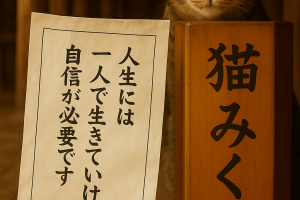 猫みく
人生には
一人で生きていけ
自信が必要です